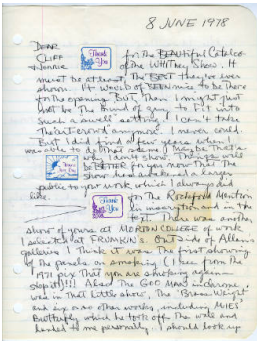 8 JUNE 1978
DEAR
CLIFF
Thank You
for the BEAUTIFUL Catalog
of the WHITNEY Show. It
must be at least the BEST they've ever
shown. It would of BEEN nice to be there
for the opening. But, Then I might just
not be the kind of guy to fit into
such a swell setting. I can't take
the art crowd anymore. I never could.
But I did for a few years when I
was able to
why I don't show. Things will
be BETTER for you now that The
show has awakened a larger
public to your work which I always did
like.
Thank You
for the Rockford Mention
in and
text. There was another
show of yours at MORTON COLLEGE of work
I selected at FRUMKINS. Outside of Allans
galleries I think it was the first showing
of the panels on anything (I see from the
1971 pix That you are smoking again—
stop it!!!) Also the GOD MAN
was in that little show, The "Brass Weight"
and six or so other works, including MIES'
Butterfly which he took off The wall and
handed to me personally. I should look up